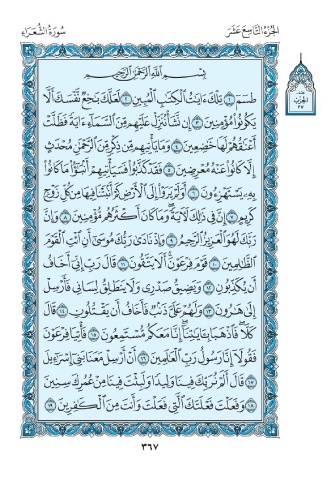 سُورَةُ الشُّعَرَاءِ
الجُزْءُ التَّاسِعَ عَشَرَ
بِسْمِ اللَّهِ الرَّحْمَٰنِ الرَّحِيمِ
طسٓمٓ ١ تِلْكَ ءَايَٰتُ ٱلْكِتَٰبِ ٱلْمُبِينِ ٢ لَعَلَّكَ بَٰخِعٌ نَّفْسَكَ أَلَّا
يَكُونُوا۟ مُؤْمِنِينَ ٣ إِن نَّشَأْ نُنَزِّلْ عَلَيْهِم مِّنَ ٱلسَّمَآءِ ءَايَةً فَظَلَّتْ
أَعْنَٰقُهُمْ لَهَا خَٰضِعِينَ ٤ وَمَا يَأْتِيهِم مِّن ذِكْرٍ مِّنَ ٱلرَّحْمَٰنِ مُحْدَثٍ
إِلَّا كَانُوا۟ عَنْهُ مُعْرِضِينَ ٥ فَقَدْ كَذَّبُوا۟ فَسَيَأْتِيهِمْ أَنۢبَٰٓؤُا۟ مَا كَانُوا۟
بِهِۦ يَسْتَهْزِءُونَ ٦ أَوَلَمْ يَرَوْا۟ إِلَى ٱلْأَرْضِ كَمْ أَنۢبَتْنَا فِيهَا مِن كُلِّ زَوْجٍ
كَرِيمٍ ٧ إِنَّ فِى ذَٰلِكَ لَءَايَةً وَمَا كَانَ أَكْثَرُهُم مُّؤْمِنِينَ ٨ وَإِنَّ
رَبَّكَ لَهُوَ ٱلْعَزِيزُ ٱلرَّحِيمُ ٩ وَإِذْ نَادَىٰ رَبُّكَ مُوسَىٰٓ أَنِ ٱئْتِ ٱلْقَوْمَ
ٱلظَّٰلِمِينَ ١٠ قَوْمَ فِرْعَوْنَ أَلَا يَتَّقُونَ ١١ قَالَ رَبِّ إِنِّىٓ أَخَافُ
أَن يُكَذِّبُونِ ١٢ وَيَضِيقُ صَدْرِى وَلَا يَنطَلِقُ لِسَانِى فَأَرْسِلْ
إِلَىٰ هَٰرُونَ ١٣ وَلَهُمْ عَلَىَّ ذَنۢبٌ فَأَخَافُ أَن يَقْتُلُونِ ١٤ قَالَ
كَلَّا فَٱذْهَبَا بِـَٔايَٰتِنَآ إِنَّا مَعَكُم مُّسْتَمِعُونَ ١٥ فَأْتِيَا فِرْعَوْنَ
فَقُولَآ إِنَّا رَسُولُ رَبِّ ٱلْعَٰلَمِينَ ١٦ أَنْ أَرْسِلْ مَعَنَا بَنِىٓ إِسْرَٰٓءِيلَ
١٧ قَالَ أَلَمْ نُرَبِّكَ فِينَا وَلِيدًا وَلَبِثْتَ فِينَا مِنْ عُمُرِكَ سِنِينَ
١٨ وَفَعَلْتَ فَعْلَتَكَ ٱلَّتِى فَعَلْتَ وَأَنتَ مِنَ ٱلْكَٰفِرِينَ ١٩
الحزب
٣٧
٣٦٧